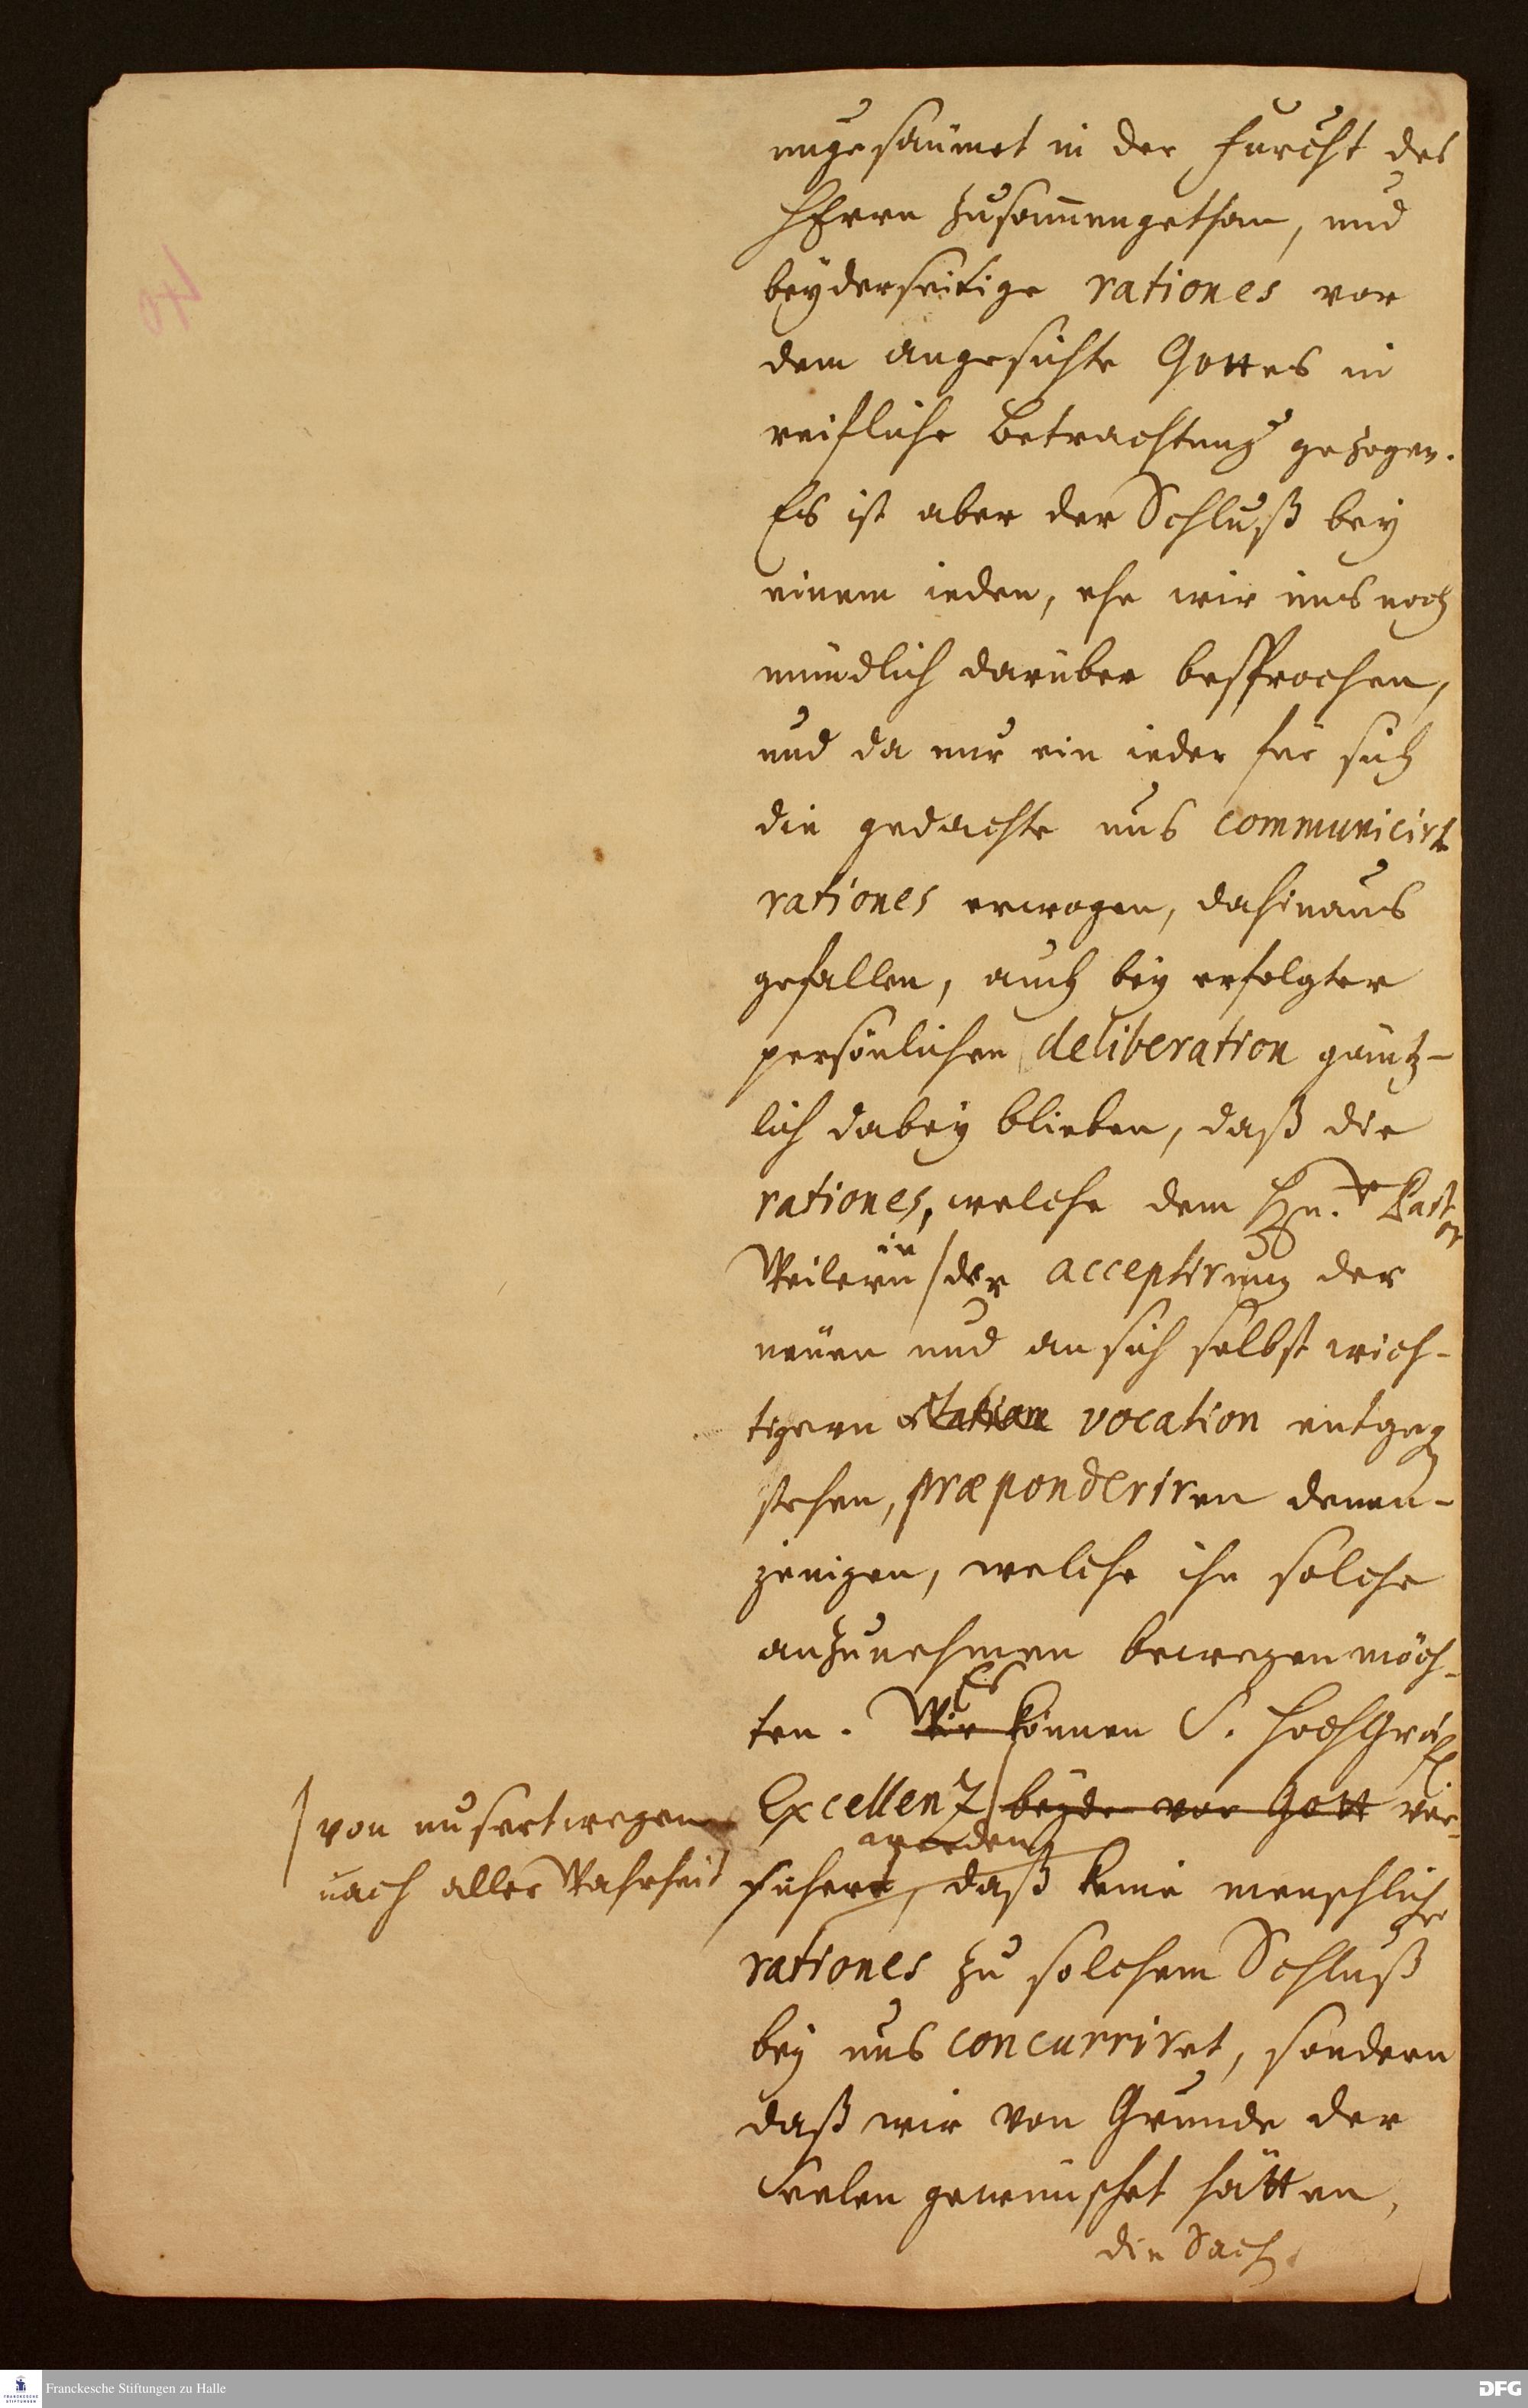 ungesäumet in der furcht des
HErrn zusam̄engethan, und
beyderseitige rationes vor
dem angesichte Gottes in
reifliche betrachtung gezogen.
Es ist aber der Schluß bey
einem ieden, ehe wir uns noch
mündlich darüber besprochen,
und da nur ein ieder für sich
die gedachte uns communicirte
rationes erwogen, dahinaus
gefallen, auch bey erfolgter
persönlichen deliberation gäntz-
lich dabey blieben, daß die
rationes, welche dem Hn. Pastor
in
Weilern der acceptirung der
neuen und an sich selbst wich-
tigern vocation entgegen
stehen, præponderiren denen-
jenigen, welche ihn solche
anzunehmen bewegen möch-
Es
ten. Wir können S. HochGräfl
von unsertwegen Excellenz beyde vor Gott ver-
werden
nach aller Wahrheit sichert, daß keine menschliche
rationes zu solchem Schluß
bey uns concurriret, sondern
daß wir von Grunde der
Seelen gewünschet hätten,
die Sache
40
Franckesche Stiftungen zu Halle
DFG